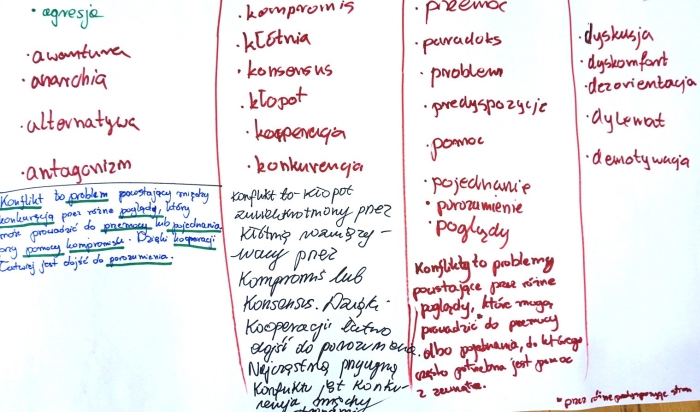 • agresja
• awantura
• anarchia
• alternatywa
• antagonizm
Konflikt to problem powstający między
konkurencją przez różne poglądy, który
może prowadzić do przemocy lub pojednania
przy pomocy kompromisu. Dzięki kooperacji
łatwiej jest dojść do porozumienia.
• kompromis
• kłótnia
• konsensus
• kłopot
• kooperacja
• konkurencja
Konflikt to - kłopot
zuwielokrotniony przez
kłótnię rozwiązy-
wacy przez
Kompromis lub
Konsensus. Dzięki
Kooperacji łatwo
dojść do porozumienia.
Najczęstszą przyczyną
Konfliktu jest Konku-
rencja
• przemoc
• paradoks
• problem
• predyspozycje
• pomoc
• pojednanie
• porozumienie
• poglądy
Konflikty to problemy
powstające przez różne
poglądy, które mogą
prowadzić do przemocy
albo pojednania, do którego
często potrzebna jest pomoc
z zewnątrz.
• dyskusja
• dyskomfort
• dezorientacja
• dylemat
• demotywacja
* przez różne predyspozycje stron